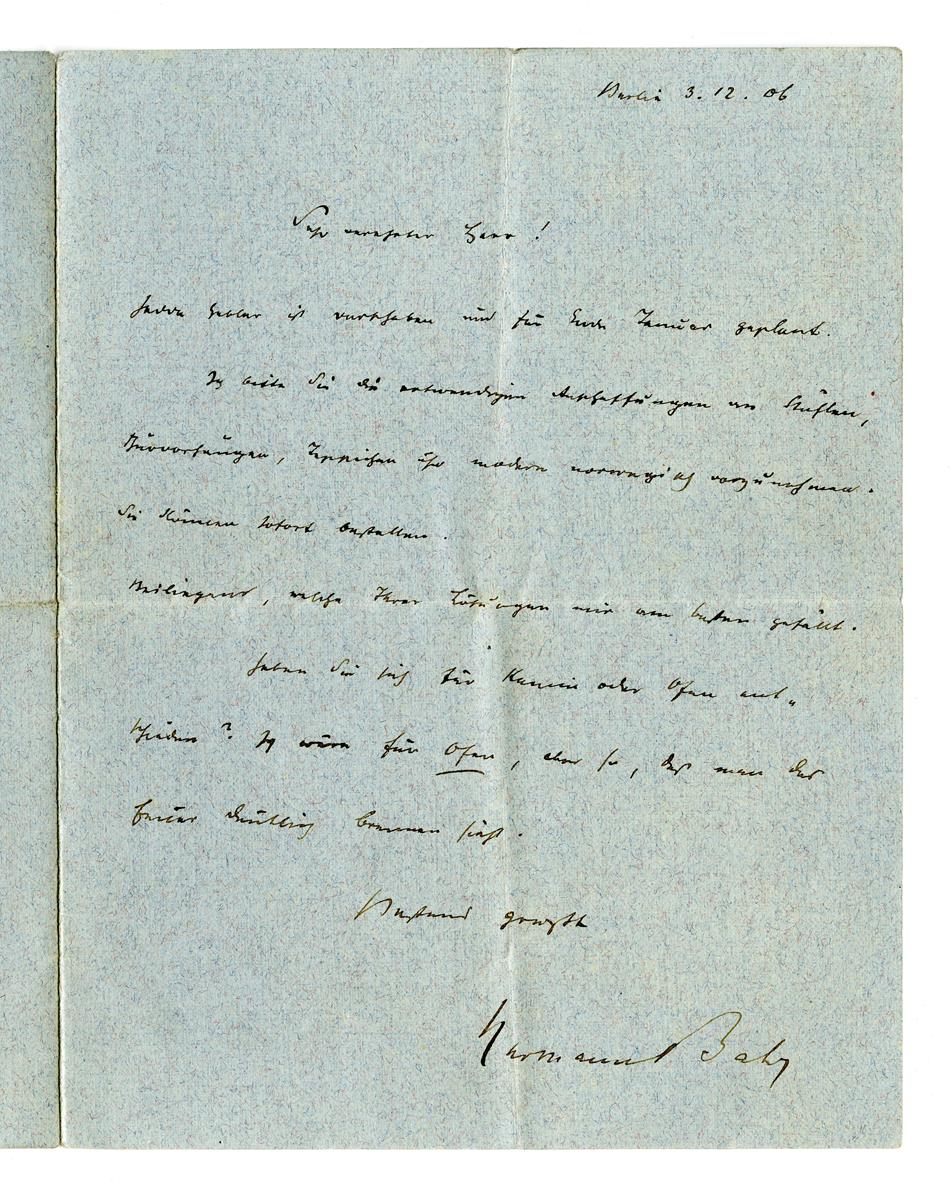 Berlin 3. 12. 06
Sehr verehrter Herr!
Hedda Gabler ist vorschoben und für Ende Januar geplant.
Ich bitte Sie die notwendigen Anschaffungen an Stühlen,
Türvorhängen, Teppichen sehr modern norwegisch vorzunehmen.
Sie können sofort bestellen.
Beiliegend, welche Ihrer Lösungen mir am besten gefällt.
Haben Sie sich für Kamin oder Ofen ent-
schieden? Ich wäre für Ofen, aber so, daß man das
Feuer deutlich brennen sieht.
Bestens grüßt
Hermann Bahr